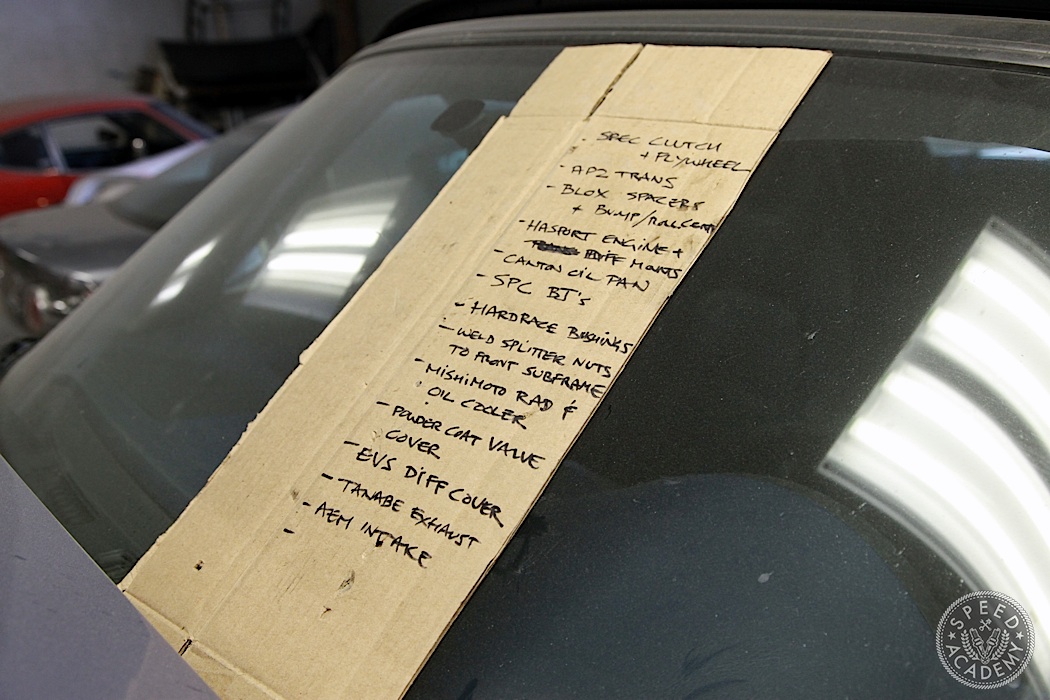 - SPEC CLUTCH
+ FLYWHEEL
- AP2 TRANS
- BLOX SPACERS
+ BUMP/ROLLCENT
- HASPORT ENGINE +
DIFF MOUNTS
- CANTON OIL PAN
- SPC BJ's
- HARDRACE BUSHINGS
- WELD SPLITTER NUTS
TO FRONT SUBFRAME
- MISHIMOTO RAD &
OIL COOLER
- POWDERCOAT VALVE
COVER
- EVS DIFF COVER
- TANABE EXHAUST
- AEM INTAKE
-
SPEED
ACADEMY